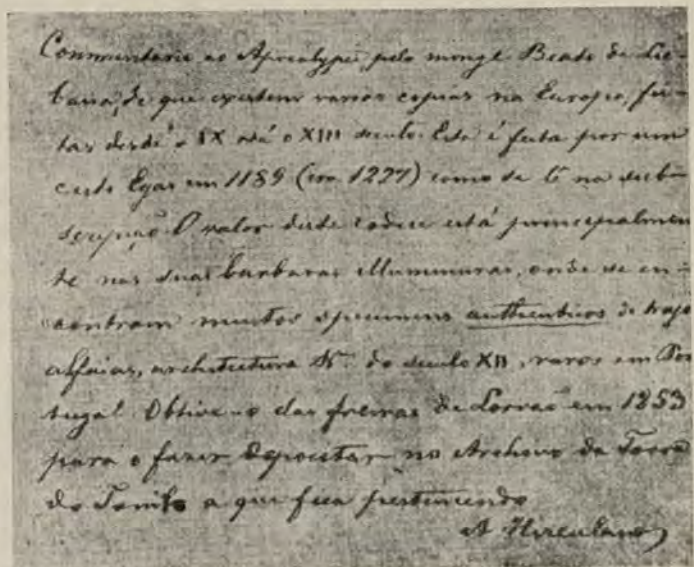 Commentario ao Apocalypse, pelo monge Beato de Lie-
bana, de que existem varias copias na Europa, fei-
tas desde o IX até o XIII seculo. Esta é feita por um
certo Egas em 1189 (era 1227) como se lê na sub-
scripção. O valor deste codice está principalmen
te nas suas barbaras illuminuras, onde se en-
contram muitos specimens authenticos de trajos
alfaias, architectura &. do seculo XII, raros em Por
tugal. Obtive-o das freiras de Lorvão em 1853
para o fazer depositar no Archivo da Torre
do Tombo a que fica pertencendo
A Herculano